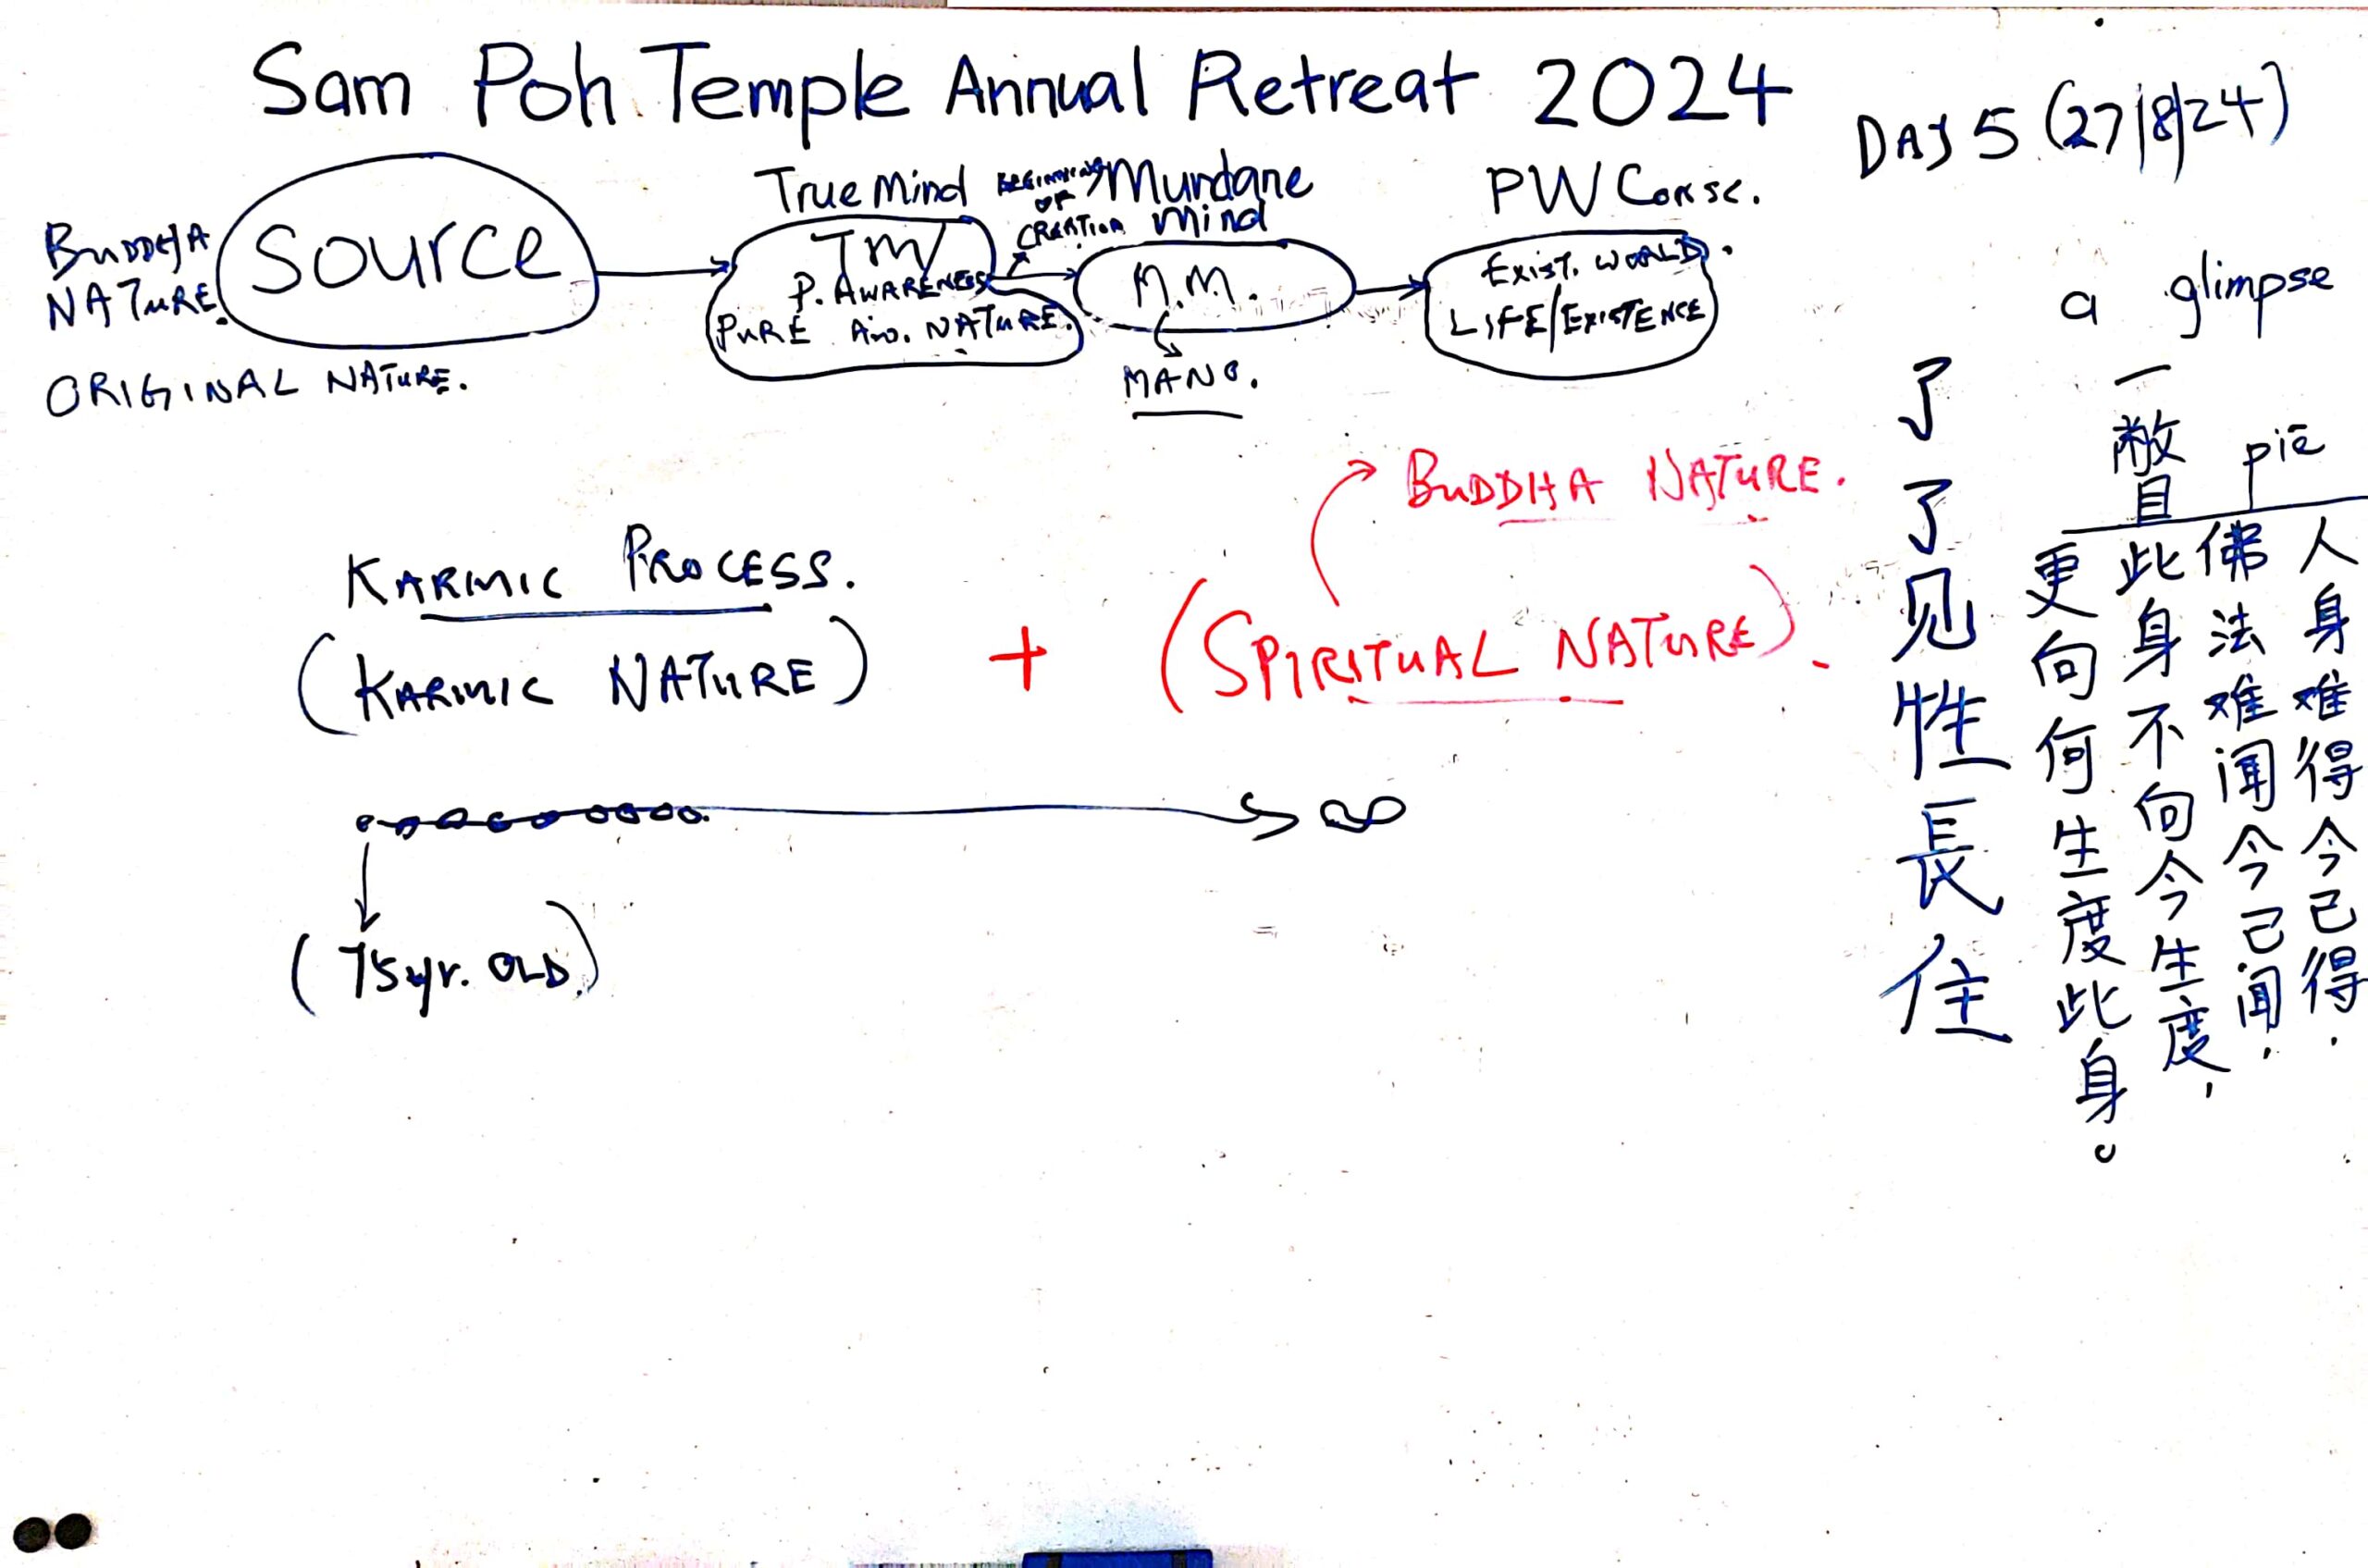 Sam Poh Temple Annual Retreat 2024
DAY 5 (27/8/24)
BUDDHA
NATURE.
Source
ORIGINAL NATURE.
True Mind
TM/
P. AWARENESS
PURE Aw. NATURE.
BEGINNING
OF
CREATION
Mundane
Mind
M.M.
MANO.
PW Consc.
EXIST. WORLD.
LIFE/EXISTENCE
a glimpse
一瞥
piē
了了见性長住
人身难得今已得.
佛法难闻今已闻,
此身不向今生度,
更向何生度此身。
KARMIC PROCESS.
(KARMIC NATURE)
+
BUDDHA NATURE.
(SPIRITUAL NATURE).
∞
(75yr. OLD)